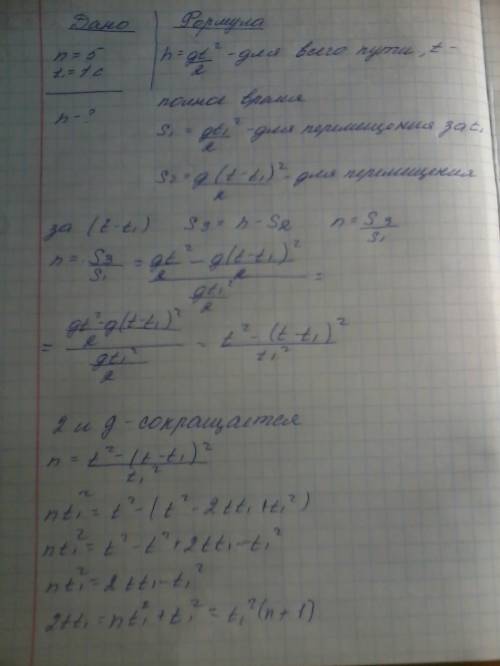 Дано Формула
n = 5
t₁ = 1c
h = gt²/2 - для всего пути, t -
h - ?
полное время
S₁ = gt₁²/2 - для перемещения за t₁
S₂ = g(t-t₁)²/2 - для перемещения
за (t-t₁) S₃ = h - S₂ n = S₃/S₁
n = S₃/S₁ = (gt²/2 - g(t-t₁)²/2)/(gt₁²/2) =
= ((gt²-g(t-t₁)²)/2)/(gt₁²/2) = (t²-(t-t₁)²)/t₁²
2 и g - сокращается
n = (t²-(t-t₁)²)/t₁²
nt₁² = t² - (t² - 2tt₁ + t₁²)
nt₁² = t² - t² + 2tt₁ - t₁²
nt₁² = 2tt₁ - t₁²
2tt₁ = nt₁² + t₁² = t₁²(n+1)